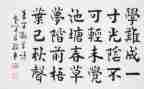 學難成一
寸光陰不
可輕未覺
池塘春草
夢階前梧
葉已秋聲